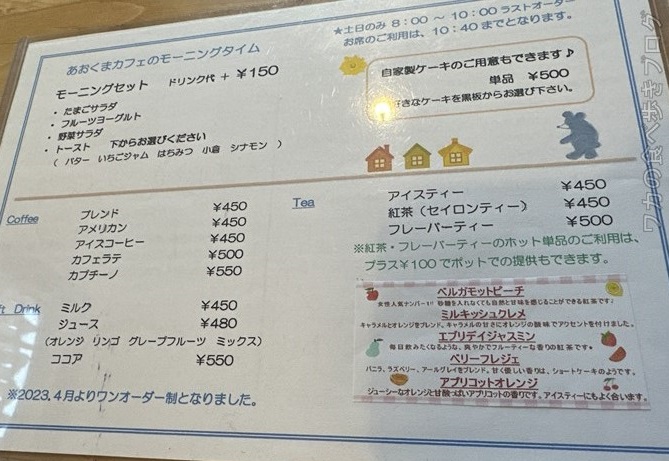 ★土日のみ 8:00 ～ 10:00 ラストオーダー
お席のご利用は、10:40 までとなります。
あおくまカフェのモーニングタイム
モーニングセット ドリンク代 + ￥150
・ たまごサラダ
・ フルーツヨーグルト
・ 野菜サラダ
・ トースト 下からお選びください
( バター いちごジャム はちみつ 小倉 シナモン )
自家製ケーキのご用意もできます♪
単品 ￥500
きなケーキを黒板からお選び下さい。
Coffee
ブレンド ￥450
アメリカン ￥450
アイスコーヒー ￥450
カフェラテ ￥500
カプチーノ ￥550
Tea
アイスティー ￥450
紅茶（セイロンティー） ￥450
フレーバーティー ￥500
※紅茶・フレーバーティーのホット単品のご利用は、
プラス￥100でポットでの提供もできます。
t Drink
ミルク ￥450
ジュース ￥480
(オレンジ リンゴ グレープフルーツ ミックス)
ココア ￥550
※2023.4月よりワンオーダー制となりました。
ベルガモットピーチ
女性人気ナンバー1!! 砂糖を入れなくても自然と甘味を感じることができる紅茶です♪
ミルキッシュクレメ
キャラメルとオレンジをブレンド。キャラメルの甘さにオレンジの酸味でアクセントを付けました。
エブリデイジャスミン
毎日飲みたくなるような、爽やかでフルーティーな香りの紅茶です。
ベリーフレジェ
バニラ、ラズベリー、アールグレイをブレンド。甘く優しい香りは、ショートケーキのようです。
アプリコットオレンジ
ジューシーなオレンジと甘酸っぱいアプリコットの香りです。アイスティーにもよく合います。
ワカの食べ歩きブログ